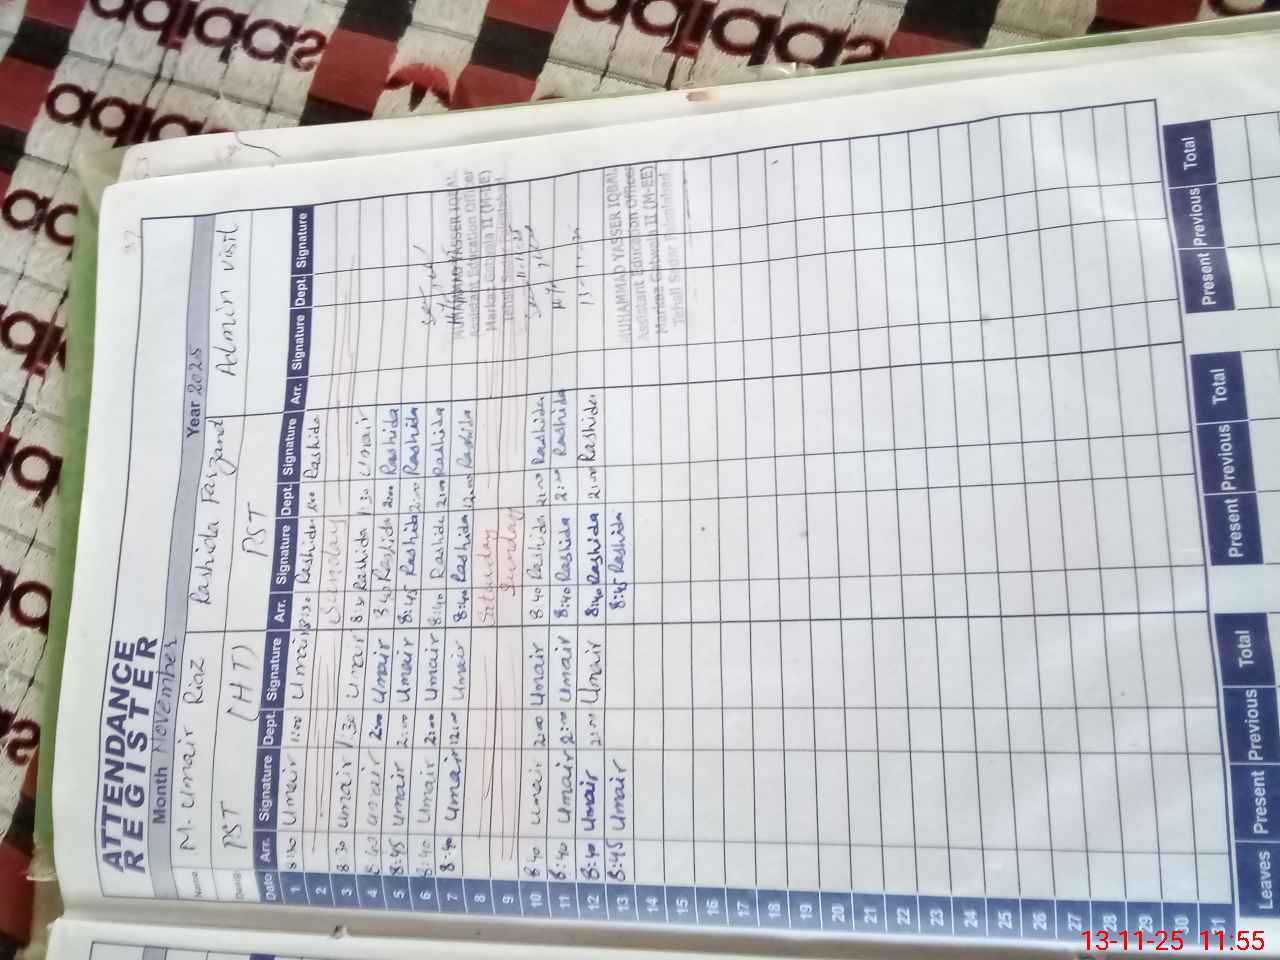 ATTENDANCE
REGISTER
Month November Year 2025
Name M. Umair Riaz Rashida Farzand Admin visit
PST (HT) PST
Date Arr. Signature Dept. Signature Arr. Signature Dept. Signature Arr. Signature Dept. Signature
1 8:30 Umair 11:00 Umair 8:30 Rashida Rashida
2 Sunday
3 8:30 Umair 1:30 Umair 8:30 Rashida 1:30 Umair
4 8:40 Umair 2:00 Umair Rashida 2:00 Rashida
5 8:45 Umair 2:00 Umair 8:45 Rashida 2:00 Rashida
6 8:40 Umair 2:00 Umair 8:40 Rashida 2:00 Rashida
7 8:40 Umair 12:00 Umair 8:40 Rashida 12:00 Rashida
MUHAMMAD YASSER IQBAL
Assistant Education Officer
Markaz Gatwala II (M-EE)
8 Saturday
9 Sunday
10 8:40 Umair 2:00 Umair 8:40 Rashida 2:00 Rashida
11 8:40 Umair 2:00 Umair 8:40 Rashida 2:00 Rashida
12 8:40 Umair 2:00 Umair 8:40 Rashida 2:00 Rashida
13 8:45 Umair 8:45 Rashida
MUHAMMAD YASSER IQBAL
Assistant Education Officer
Markaz Gatwala II (M-EE)
14
15
16
17
18
19
20
21
22
23
24
25
26
27
28
29
30
31
Leaves Present Previous Total Present Previous Total Present Previous Total
13-11-25 11:55